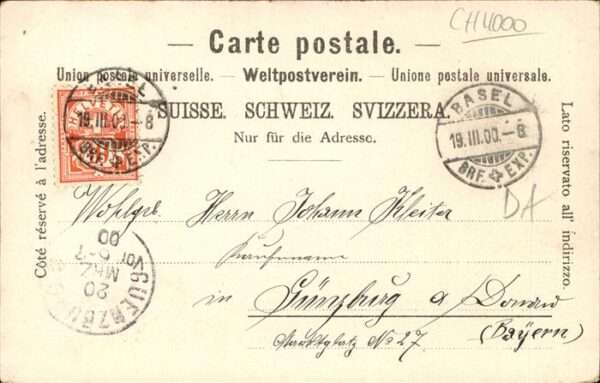 CH4000
— Carte postale. —
Union postale universelle. — Weltpostverein. — Unione postale universale.
SUISSE. SCHWEIZ. SVIZZERA.
Nur für die Adresse.
Côté réservé à l'adresse.
Lato riservato all' indirizzo.
HELVETIA
BASEL
19.III.00.-8
BRF. EXP.
BASEL
19.III.00.-8
BRF. EXP.
DA
Wohlgeb. Herrn Johann Kleiter
Kaufmann
in Günzburg a Donau
Marktplatz No 27 (Bayern)
GUENZBU
20
MRZ
Vor 6-7
00